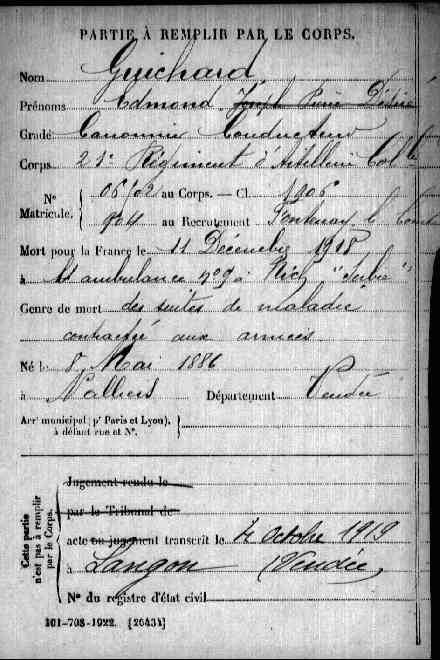 PARTIE À REMPLIR PAR LE CORPS.
Nom Guichard
Prénoms Edmond Joseph Pierre Désiré
Grade Canonnier Conducteur
Corps 21e Régiment d'Artillerie Col le
N° Matricule. { 06102 au Corps. — Cl. 1906
904 au Recrutement Fontenay le Comte
Mort pour la France le 11 Décembre 1918
à l'ambulance n° 9 à Nich "Serbie"
Genre de mort des suites de maladie
contracté aux armées
Né le 8 Mai 1886
à Nalliers Département Vendée
Arrt municipal (pr Paris et Lyon),
à défaut rue et N°.
Cette partie n'est pas à remplir par le Corps.
Jugement rendu le
par le Tribunal de
acte ou jugement transcrit le 4 octobre 1919
à Langon (Vendée)
N° du registre d'état civil
101-708-1922. [26434]